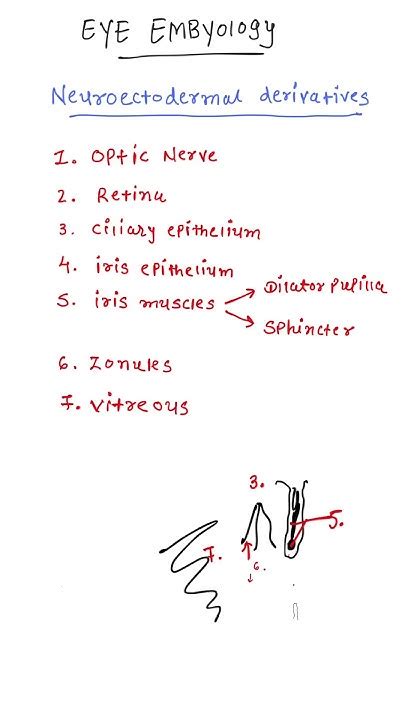 EYE EMBYOLOGY
Neuroectodermal derivatives
1. Optic Nerve
2. Retina
3. Ciliary epithelium
4. iris epithelium
5. iris muscles
Dilator Pupilla
Sphincter
6. Zonules
7. Vitreous
3.
5.
7.
6.